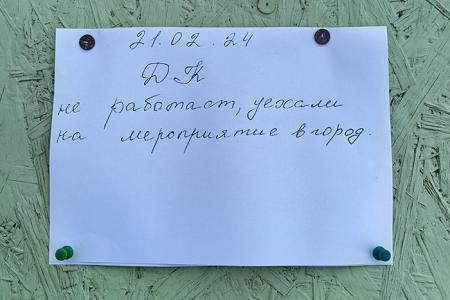 21.02.24
Д.К
не работает, уехали
на мероприятие в город.